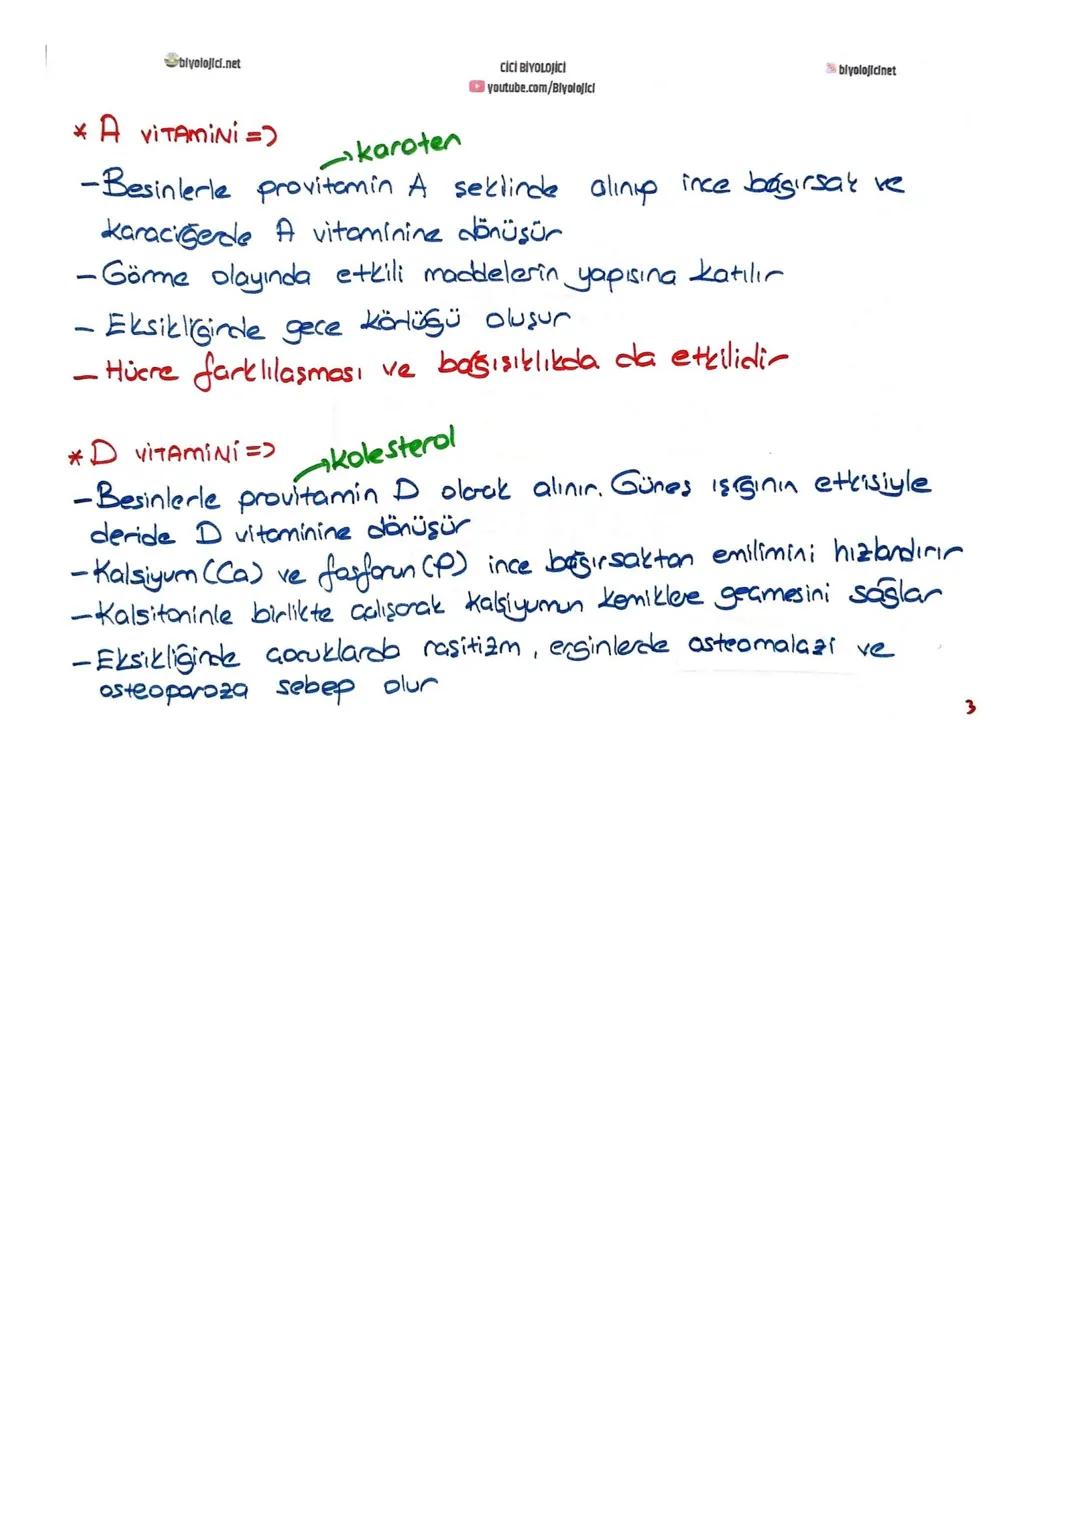 biyolojici.net
CİCİ BİYOLOJİCİ
youtube.com/Biyolojici
biyolojicinet
* A VİTAMİNİ =>
→karoten
- Besinlerle provitamin A şeklinde alınıp ince bağırsak ve
karaciğerde A vitaminine dönüşür
- Görme olayında etkili maddelerin yapısına katılır
- Eksikliğinde gece körlüğü oluşur
- Hücre farklılaşması ve bağışıklıkda da etkilidir
* D VİTAMİNİ =>
→kolesterol
- Besinlerle provitamin D olarak alınır. Güneş ışığının etkisiyle
deride D vitaminine dönüşür
- Kalsiyum (Ca) ve fosforun (P) ince bağırsaktan emilimini hızlandırır
- Kalsitoninle birlikte çalışarak kalsiyumun kemiklere geçmesini sağlar
- Eksikliğinde çocuklarda raşitizm, erginlerde osteomalazi ve
osteoporoza sebep olur
3